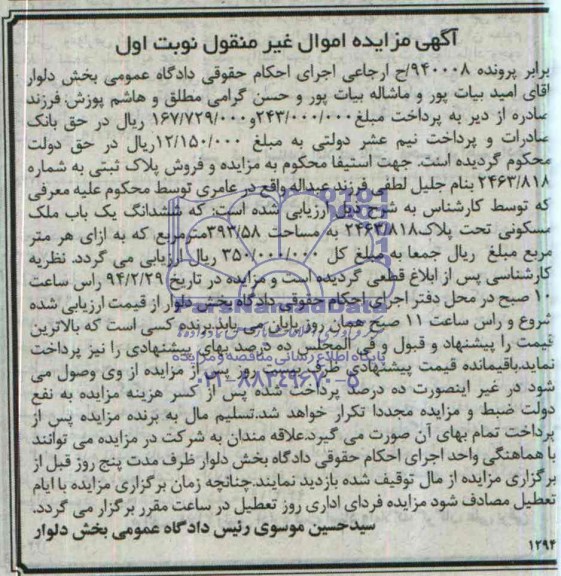 آگهی مزایده اموال غیر منقول نوبت اول
برابر پرونده ۹۴۰۰۰۸/ج ارجاعی اجرای احکام حقوقی دادگاه عمومی بخش دلوار
آقای امید بیات پور و ماشاله بیات پور و حسن گرامی مطلق و هاشم پوزش فرزند
صادره از دیر به پرداخت مبلغ ۲۴۳/۰۰۰/۰۰۰و۱۶۷/۷۲۹/۰۰۰ ریال در حق بانک
صادرات و پرداخت نیم عشر دولتی به مبلغ ۱۲/۱۵۰/۰۰۰ریال در حق دولت
محکوم گردیده است. جهت استیفا محکوم به مزایده و فروش پلاک ثبتی به شماره
۲۴۶۳/۸۱۸ بنام جلیل لطفی فرزند عبداله واقع در عامری توسط محکوم علیه معرفی
که توسط کارشناس به شرح ذیل ارزیابی شده است: که ششدانگ یک باب ملک
مسکونی تحت پلاک۲۴۶۳/۸۱۸ به مساحت ۳۹۳/۵۸مترمربع که به ازای هر متر
مربع مبلغ ریال جمعا به مبلغ کل ۳۵۰/۰۰۰/۰۰۰ ریال ارزیابی می گردد. نظریه
کارشناسی پس از ابلاغ قطعی گردیده است و مزایده در تاریخ ۹۴/۲/۲۹ راس ساعت
۱۰ صبح در محل دفتر اجرای احکام حقوقی دادگاه بخش دلوار از قیمت ارزیابی شده
شروع و راس ساعت ۱۱ صبح همان روز پایان می یابد.برنده کسی است که بالاترین
قیمت را پیشنهاد و قبول و فی المجلس ده درصد بهای پیشنهادی را نیز پرداخت
نماید.باقیمانده قیمت پیشنهادی ظرف بیست روز پس از مزایده از وی وصول می
شود در غیر اینصورت ده درصد پرداخت شده پس از کسر هزینه مزایده به نفع
دولت ضبط و مزایده مجددا تکرار خواهد شد.تسلیم مال به برنده مزایده پس از
پرداخت تمام بهای آن صورت می گیرد.علاقه مندان به شرکت در مزایده می توانند
با هماهنگی واحد اجرای احکام حقوقی دادگاه بخش دلوار ظرف مدت پنج روز قبل از
برگزاری مزایده از مال توقیف شده بازدید نمایند.چنانچه زمان برگزاری مزایده با ایام
تعطیل مصادف شود مزایده فردای اداری روز تعطیل در ساعت مقرر برگزار می گردد.
سیدحسین موسوی رئیس دادگاه عمومی بخش دلوار
۱۲۹۴
ParsNamadData
پایگاه اطلاع رسانی مناقصه و مزایده
۰۲۱-۸۸۳۴۹۶۷۰-۵